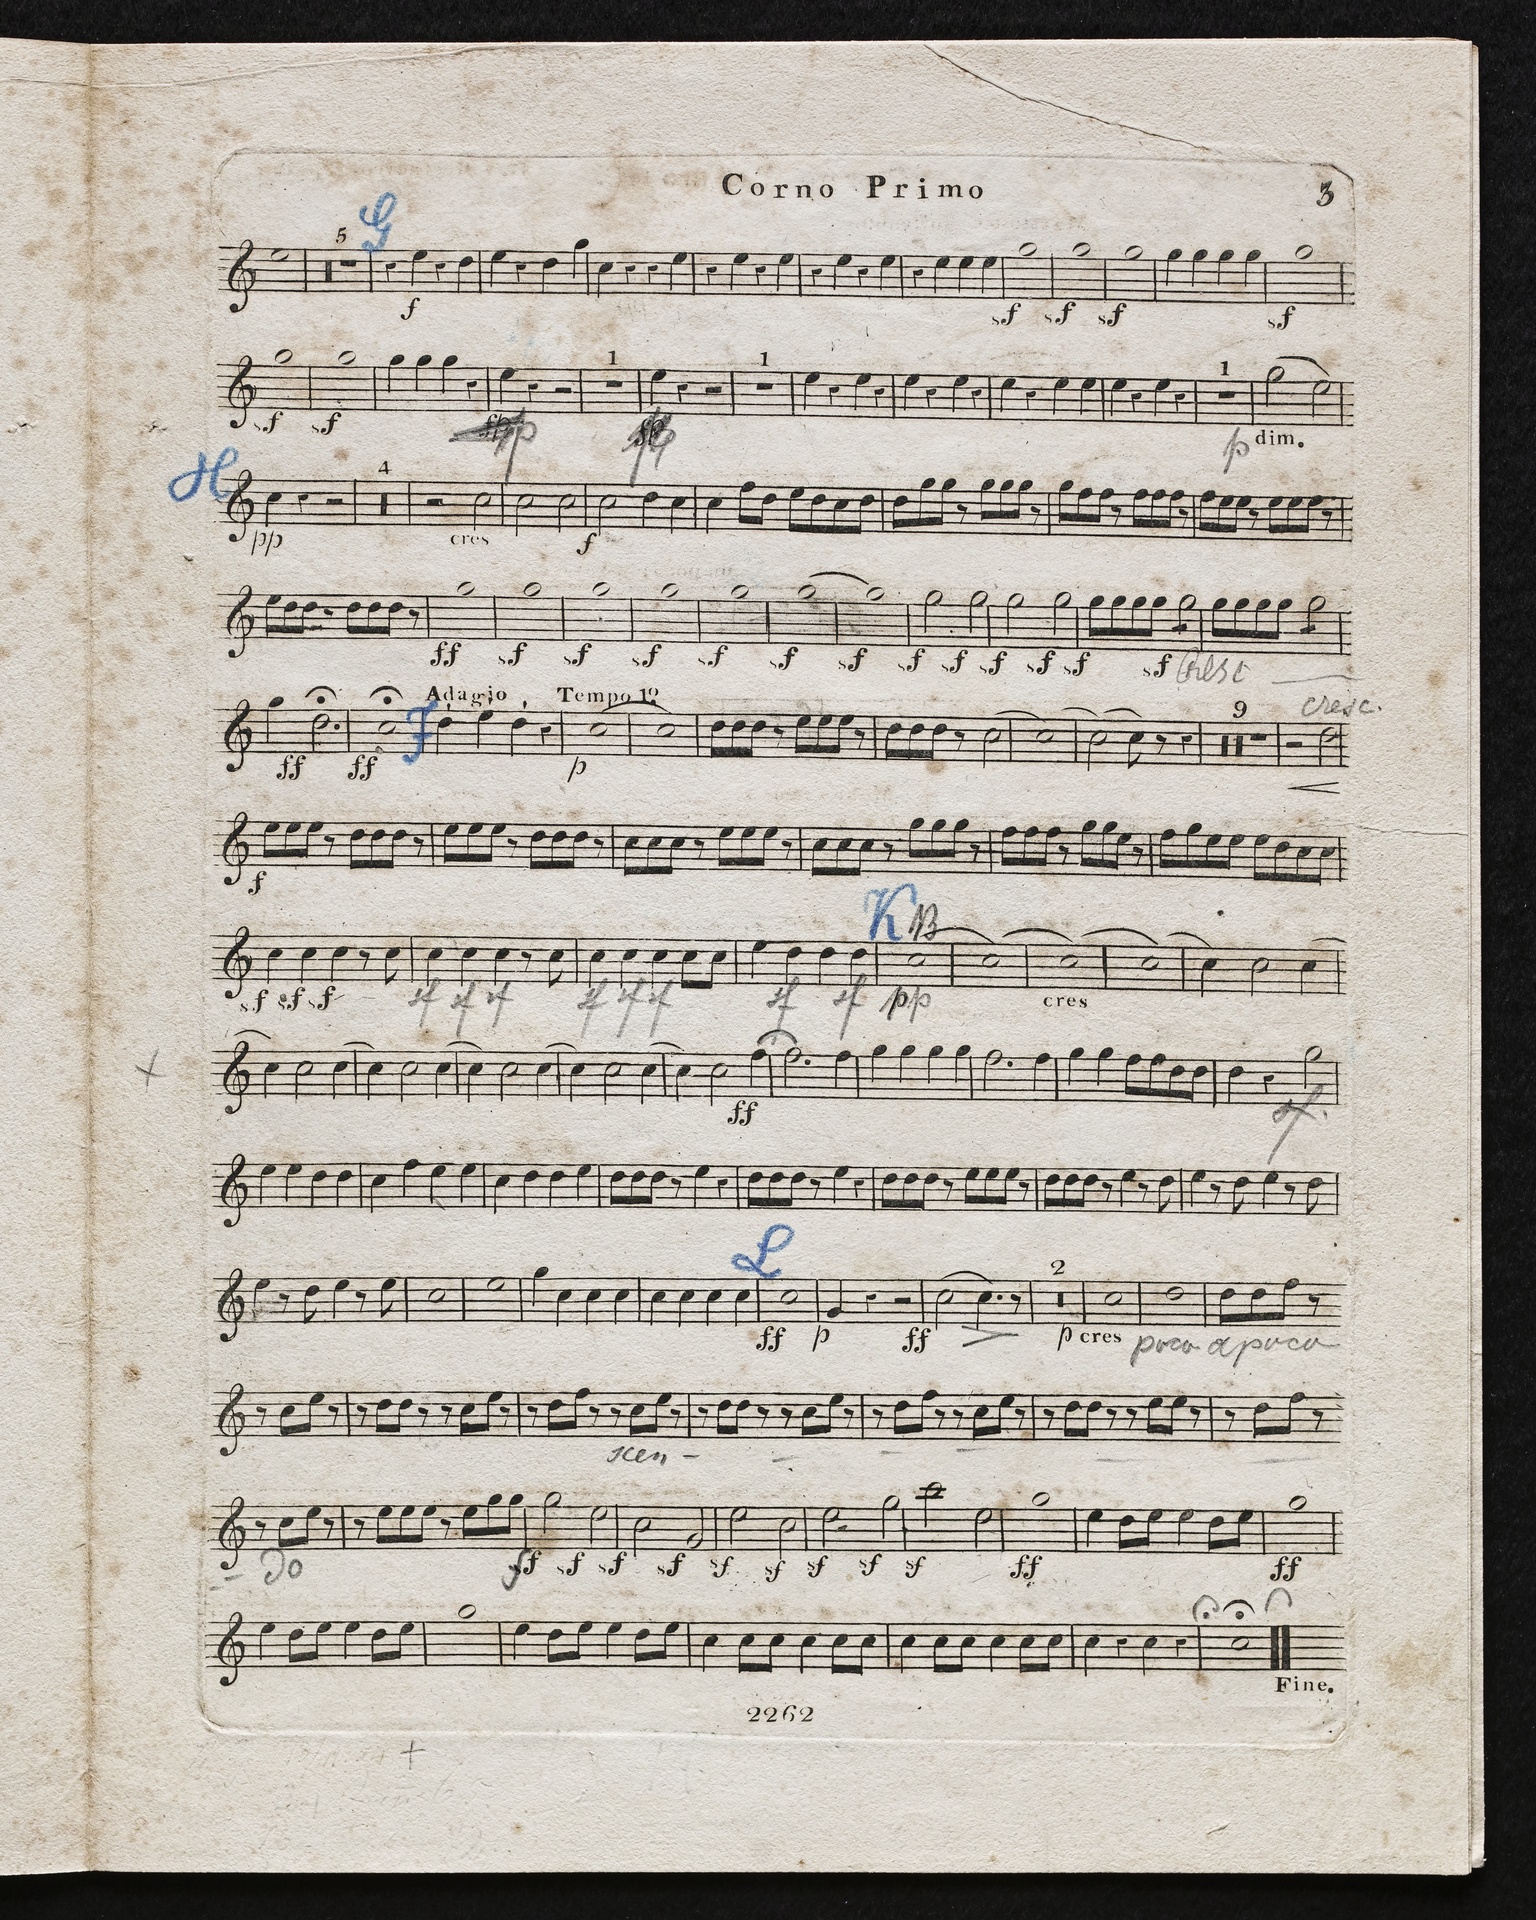 Corno Primo 3
5 G
f sf sf sf sf
1 1 1
sf sf p dim.
H 4
pp cres f
ff sf sf sf sf sf sf sf sf sf sf sf sf cresc
Adagio Tempo 1º 9 cresc.
ff ff J p
f
K NB
sf sf sf sf sf sf sf sf sf sf sf pp cres
ff sf
L
2
ff p ff p cres poco a poco
scen -
do ff sf sf sf sf sf sf sf sf ff ff
Fine.
2262